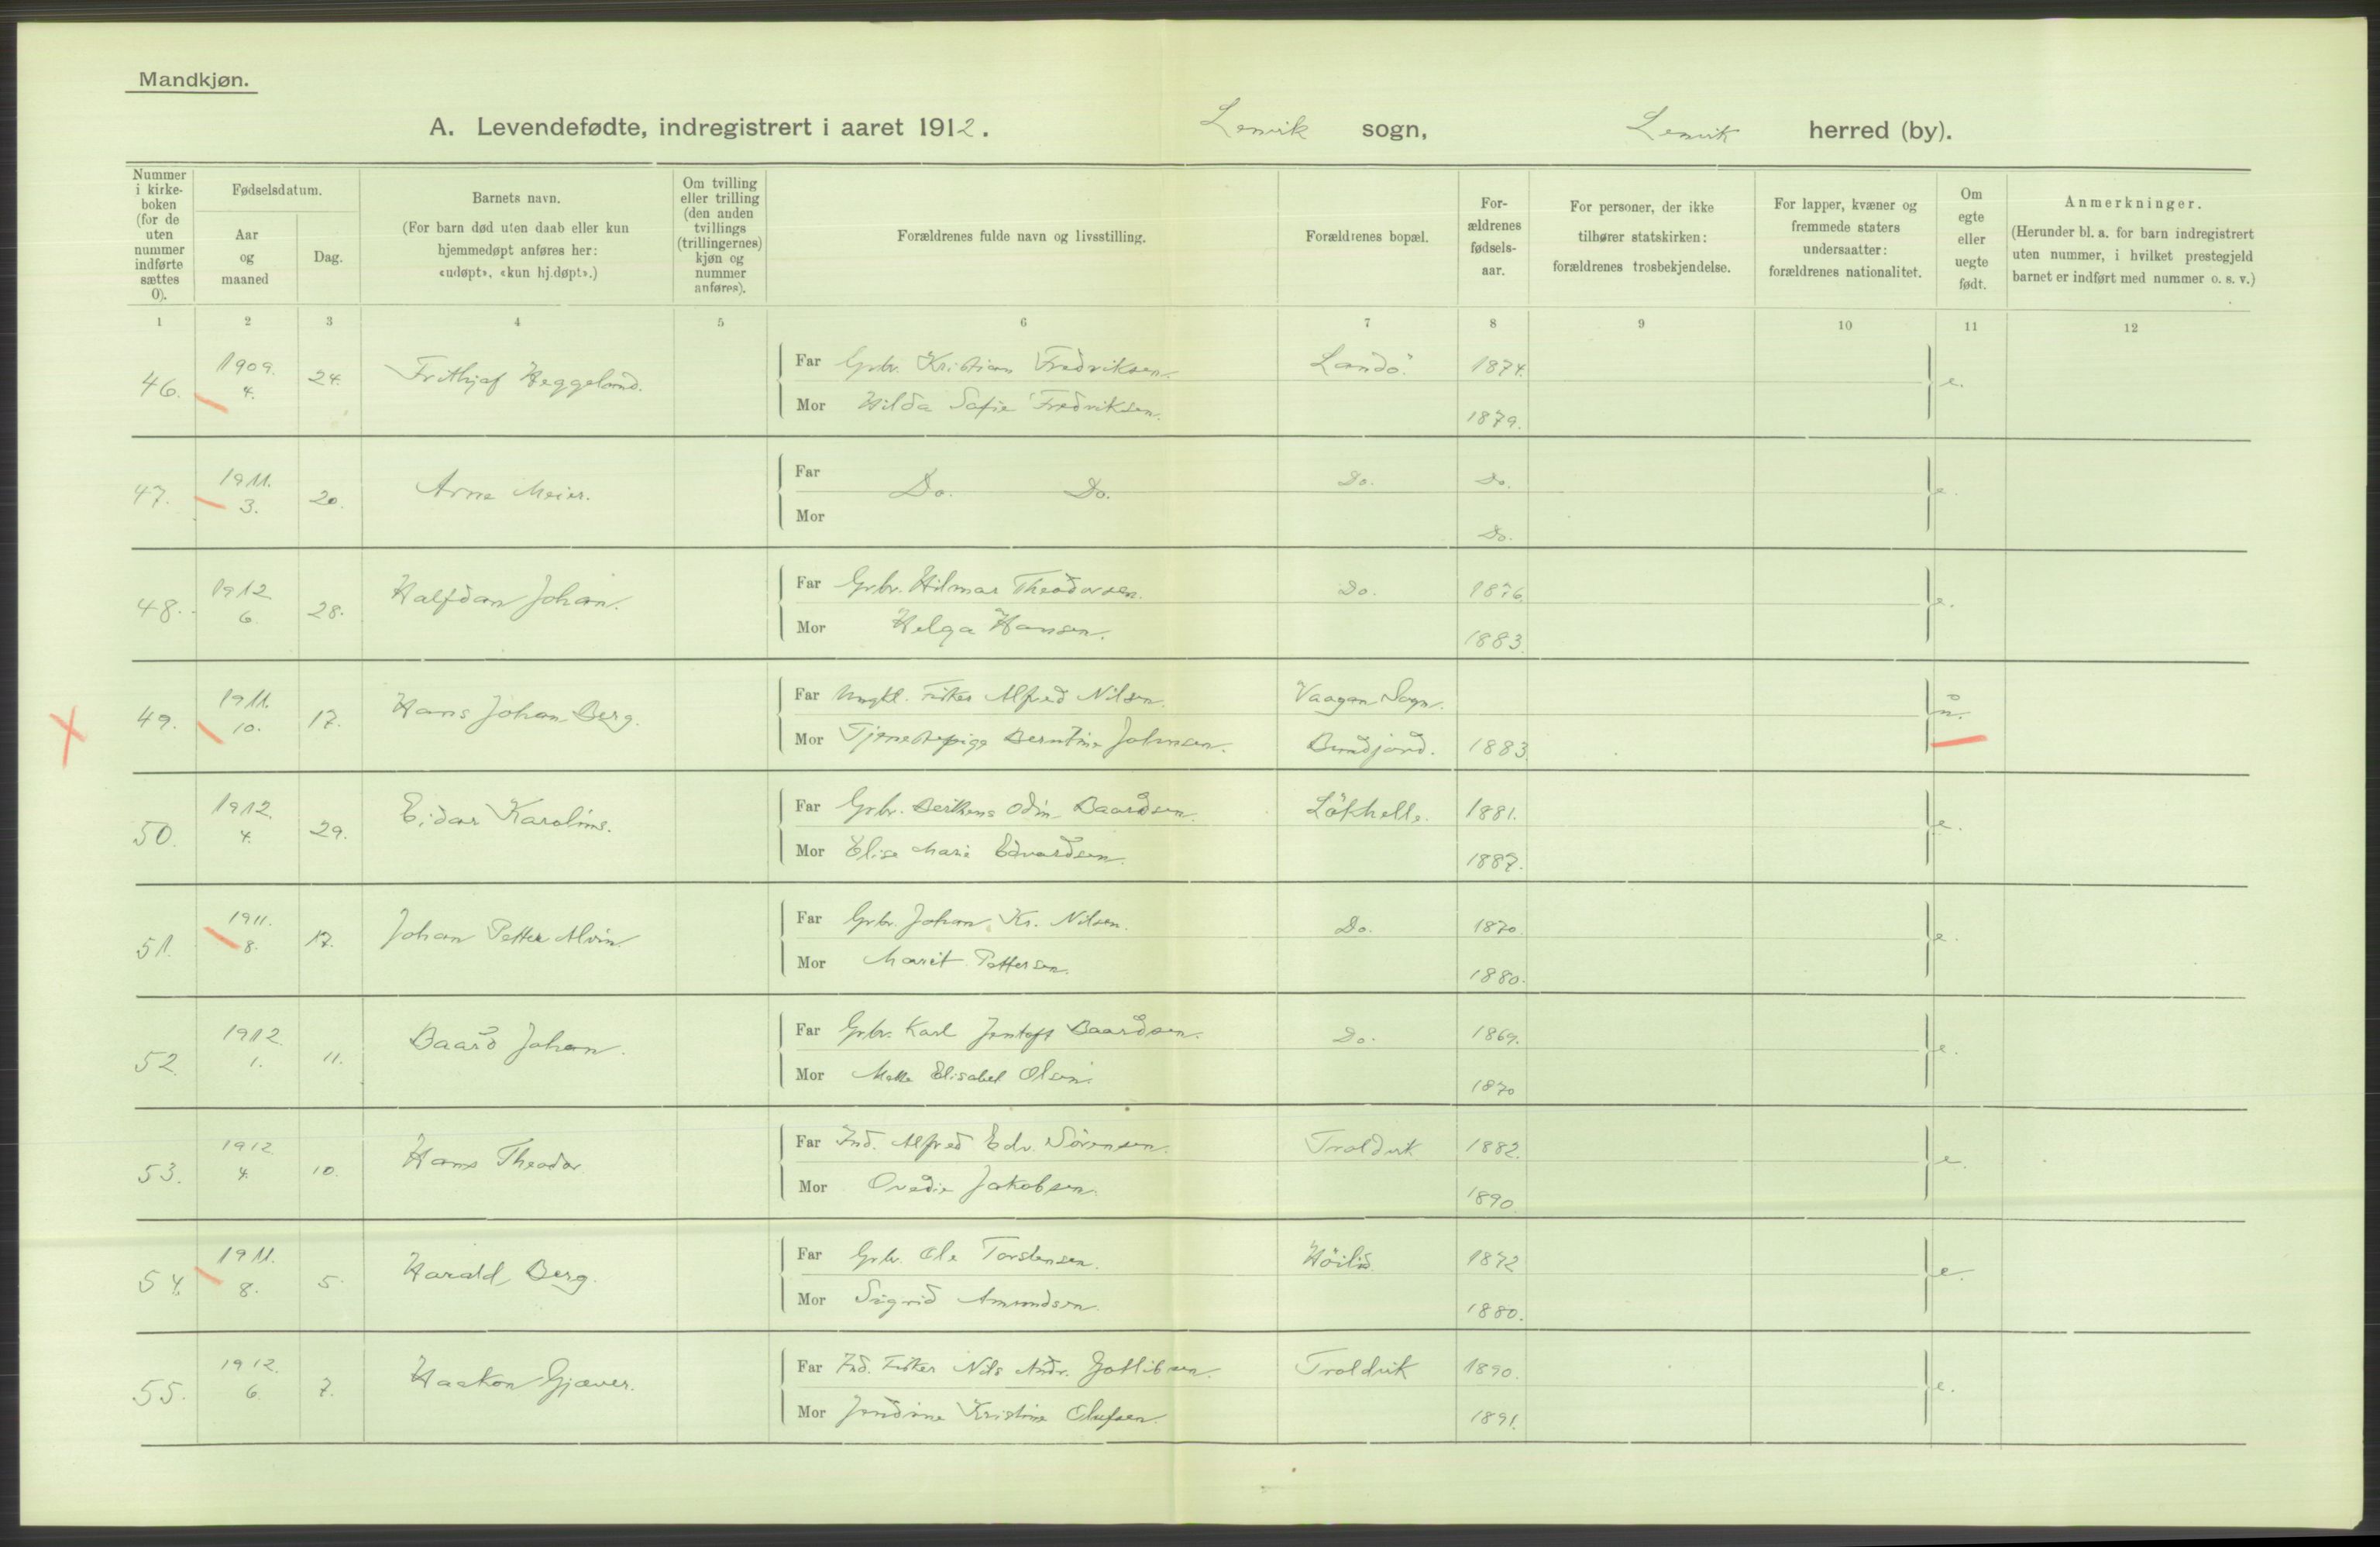 Mandkjøn.
A. Levendefødte, indregistrert i aaret 1912. Lenvik sogn, Lenvik herred (by).
Nummer i kirke-boken (for de uten nummer indførte sættes 0).
Fødselsdatum.
Aar og maaned
Dag.
Barnets navn.
(For barn død uten daab eller kun hjemmedøpt anføres her: «udøpt», «kun hj.døpt».)
Om tvilling eller trilling (den anden tvillings (trillingernes) kjøn og nummer anføres).
Forældrenes fulde navn og livsstilling.
Forældrenes bopæl.
For-ældrenes fødsels-aar.
For personer, der ikke tilhører statskirken: forældrenes trosbekjendelse.
For lapper, kvæner og fremmede staters undersaatter: forældrenes nationalitet.
Om egte eller uegte født.
Anmerkninger.
(Herunder bl. a. for barn indregistrert uten nummer, i hvilket prestegjeld barnet er indført med nummer o. s. v.)
1 2 3 4 5 6 7 8 9 10 11 12
46. 1909. 4. 24. Frithjof Heggelund. Far Grbr. Kristian Fredriksen. Landö. 1874. e.
Mor Hilda Sofie Fredriksen. 1879.
47. 1911. 3. 20. Arne Meier. Far Do. Do. Do. Do. e.
Mor Do.
48. 1912. 6. 28. Halfdan Johan. Far Grbr. Hilmar Theodorsen. Do. 1876. e.
Mor Helga Hansen. 1883.
49. 1911. 10. 17. Hans Johan Berg. Far Ungkl. Fisker Alfred Nilsen. Vaagan Sogn. u.
Mor Tjenestepige Berntine Johnsen. Bundjord. 1883.
50. 1912. 4. 29. Eidar Karolius. Far Grbr. Odin Baardsen. Lökhelle. 1881. e.
Mor Elise Marie Edvardsen. 1887.
51. 1911. 8. 17. Johan Petter Alvin. Far Grbr. Johan Kr. Nilsen. Do. 1870. e.
Mor Marit Pettersen. 1880.
52. 1912. 1. 11. Baard Johan. Far Grbr. Karl Jentoft Baardsen. Do. 1869. e.
Mor Mette Elisabet Olsen. 1870
53. 1912. 4. 10. Hans Theodor. Far Ind. Alfred Edv. Sörensen. Troldvik 1882. e.
Mor Ovedie Jakobsen. 1890.
54. 1911. 8. 5. Harald Berg. Far Grbr. Ole Torstensen. Höilid. 1872 e.
Mor Sigrid Amundsen. 1880.
55. 1912. 6. 7. Haakon Gjæver. Far Ind. Fisker Nils Andr. Gotlibsen. Troldvik 1890. e.
Mor Jendine Kristine Olufsen. 1891.